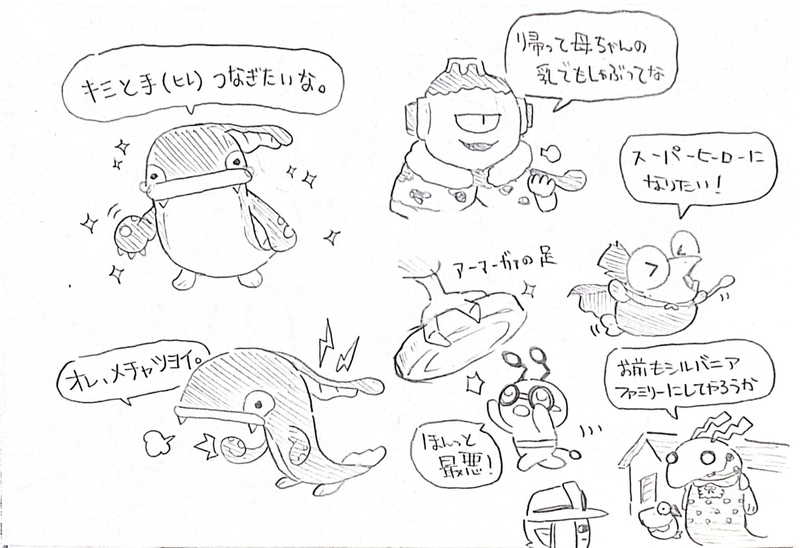 キミと手(ヒレ)つなぎたいな。
帰って母ちゃんの
乳でもしゃぶってな
スーパーヒーローに
なりたい!
アーマーガアの足
オレ、メチャツヨイ。
ほんっと
最悪!
お前もシルバニア
ファミリーにしてやろうか